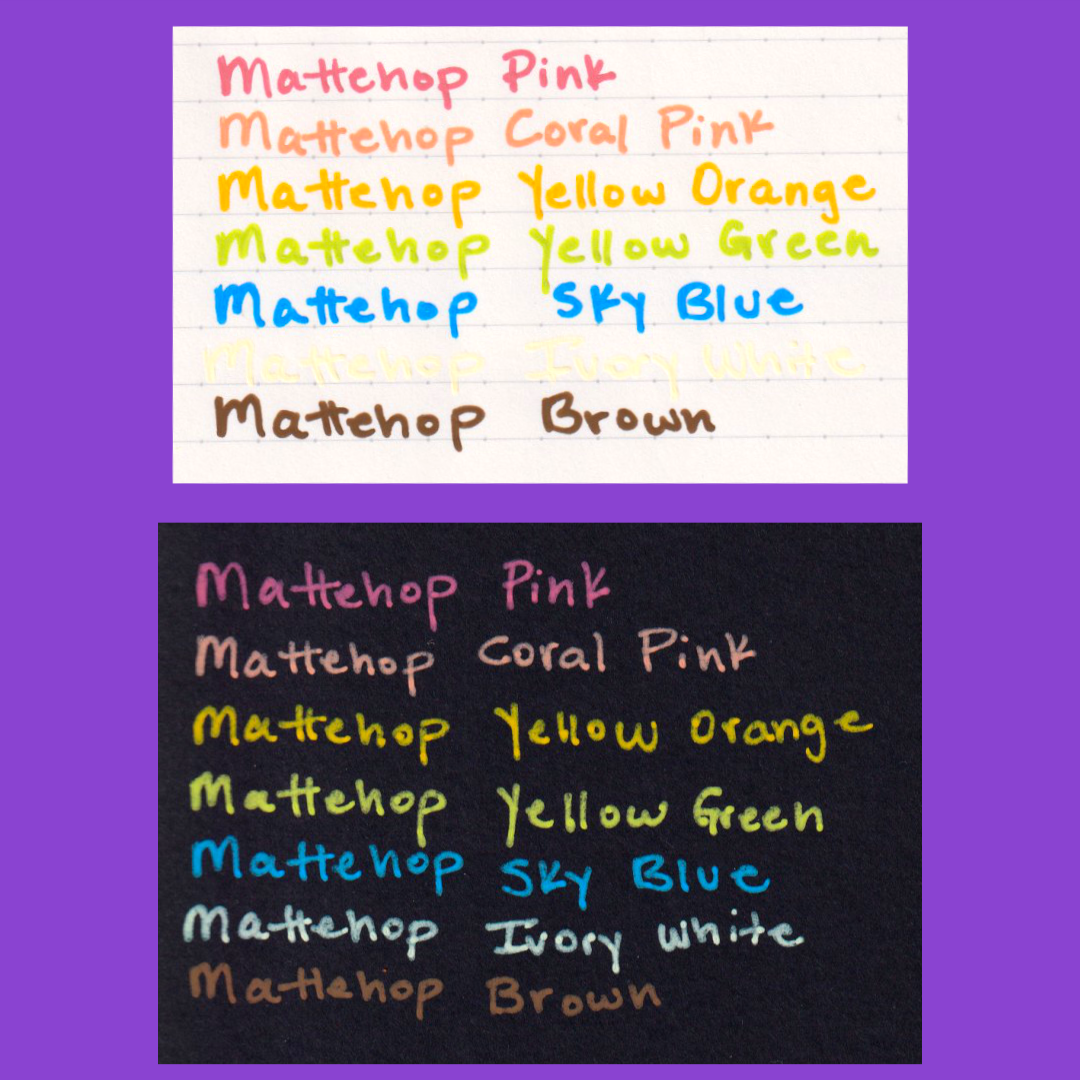 Mattehop Pink
Mattehop Coral Pink
Mattehop Yellow Orange
Mattehop Yellow Green
Mattehop Sky Blue
Mattehop Ivory White
Mattehop Brown
Mattehop Pink
Mattehop Coral Pink
Mattehop Yellow Orange
Mattehop Yellow Green
Mattehop Sky Blue
Mattehop Ivory White
Mattehop Brown